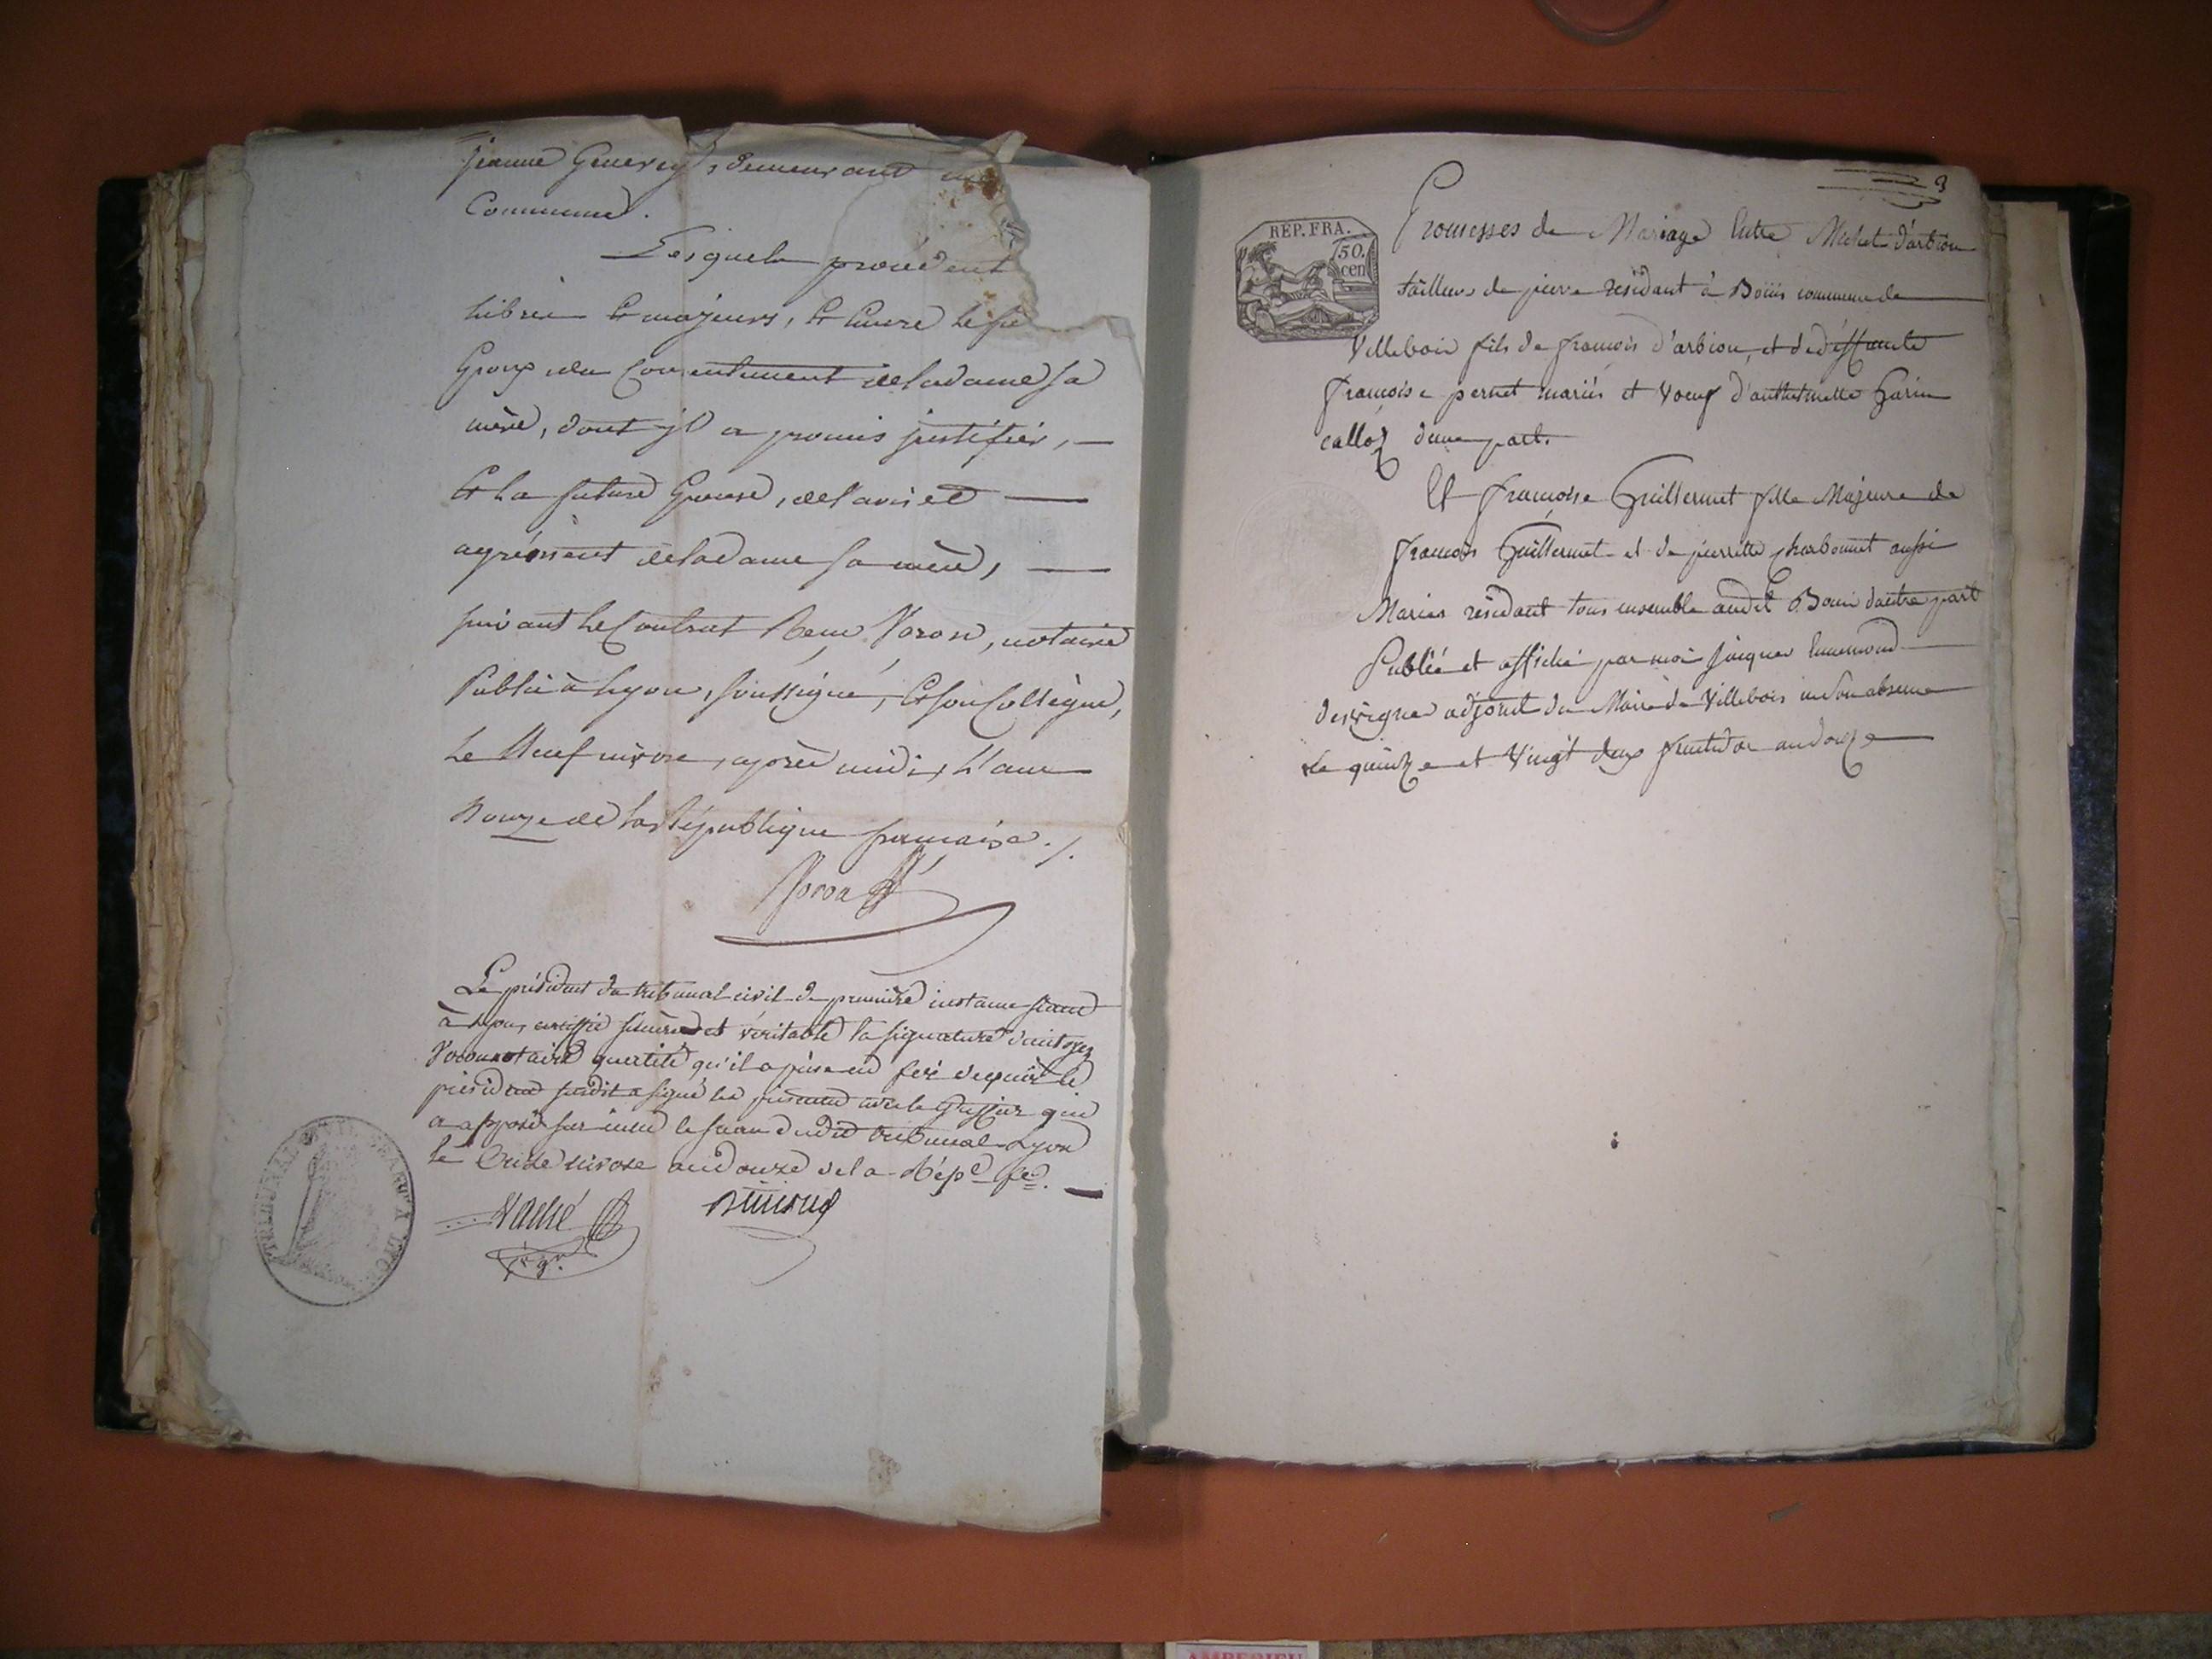 Jeanne Generey, demeurant
Commune.
Lesquels procèdent
libres Et majeurs, Et Encore le fu
Epoux du Consentement de la dame sa
mère, dont jl a promis justifier, —
Et la future Epouse, de l'avis et —
agrément de la dame sa mère, —
suivant le Contrat Reçu Voron, notaire
Public à Lyon, soussigné, Et son Collègue,
Le Neuf nivose, après midi, L'an
Douze de la République française ./.
Voron
Le président du tribunal civil de première instance séant
à Lyon, certiffie sincère et véritable la signature du citoyen
Voron notaire qualité qu'il a prise en foi de quoi le
président susdit a signé les présentes avec le Greffier qui
a apposé sur icelle le sceau dudit tribunal Lyon
le Onze nivose an douze de la Rép.e fse. —
Vaché
TRIBUNAL SEANT A LYON
3
REP. FRA.
50. cen
Promesses de Mariage Entre Michel d'arbion
tailleur de pierre residant à Boüis commune de
Villebois fils de françois d'arbion, et de deffunte
françoise pernet mariés et Voeuf d'anthelmette Garin
calloz d'une part.
Et françoise Guillermet fille Majeure de
françois Guillermet et de pierrette charbonnet aussi
Mariés résidant tous ensemble audit Bouis d'autre part
Publié et affiché par moi Jacques Ennemond
adjoint du Maire de Villebois en son absence
le quinze et Vingt deux fructidor an douze